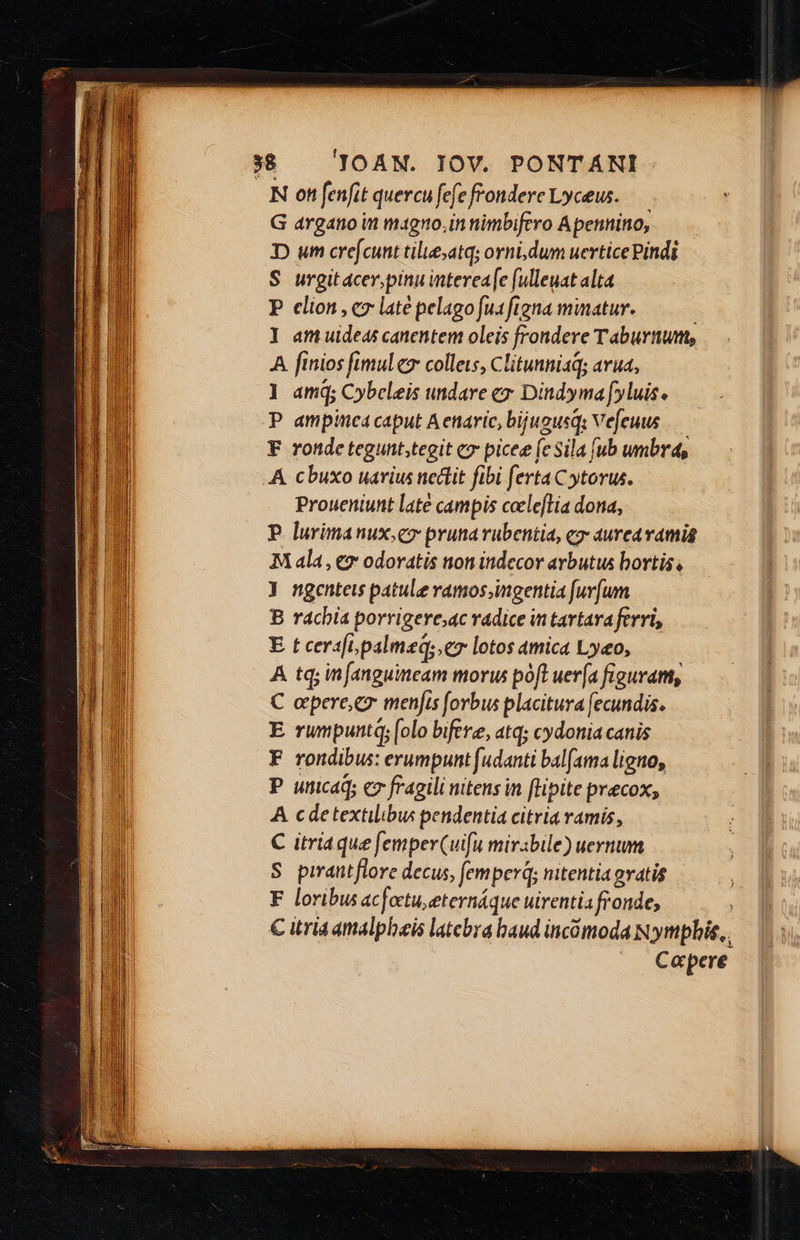 38 IOAN. IOV. PONTANI
N on ſenſit quercu ſeſe frondere Lycæus.
G argano in magno, in nimbifero Apennino,
D um creſcunt tiliæ, atq; orni, dum uertice Pindi
S urgit acer, pinu interea ſe ſulleuat alta
P elion, & latè pelago ſua ſigna minatur.
I am uideas canentem oleis frondere Taburnum,
A ſinios ſimul & colleis, Clitunniaq́; arua,
I amq́; Cybeleis undare & Dindyma ſyluis.
P ampinea caput Aenarie, bijugusq́; Veſeuus
F ronde tegunt, tegit & piceæ ſe Sila ſub umbra,
A c buxo uarius nectit ſibi ſerta Cytorus.
Proueniunt latè campis cœleſtia dona,
P lurima nux, & pruna rubentia, & aurea ramis
M ala, & odoratis non indecor arbutus hortis,
I ngenteis patulæ ramos, ingentia ſurſum
B rachia porrigere, ac radice in tartara ferri,
E t ceraſi, palmæq́;, & lotos amica Lyæo,
A tq; in ſanguineam morus pòſt uerſa figuram,
C œpere, & menſis ſorbus placitura ſecundis.
E rumpuntq́; ſolo biferæ, atq; cydonia canis
F rondibus: erumpunt ſudanti balſama ligno,
P unicaq́; & fragili nitens in ſtipite præcox,
A c de textilibus pendentia citria ramis,
C itria que ſemper (uiſu mirabile) uernum
S pirant flore decus, ſemperq́; nitentia gratis
F loribus ac fœtu, æternáque uirentia fronde,
C itria amalphæis latebra haud incōmoda Nymphis,
Cœpere